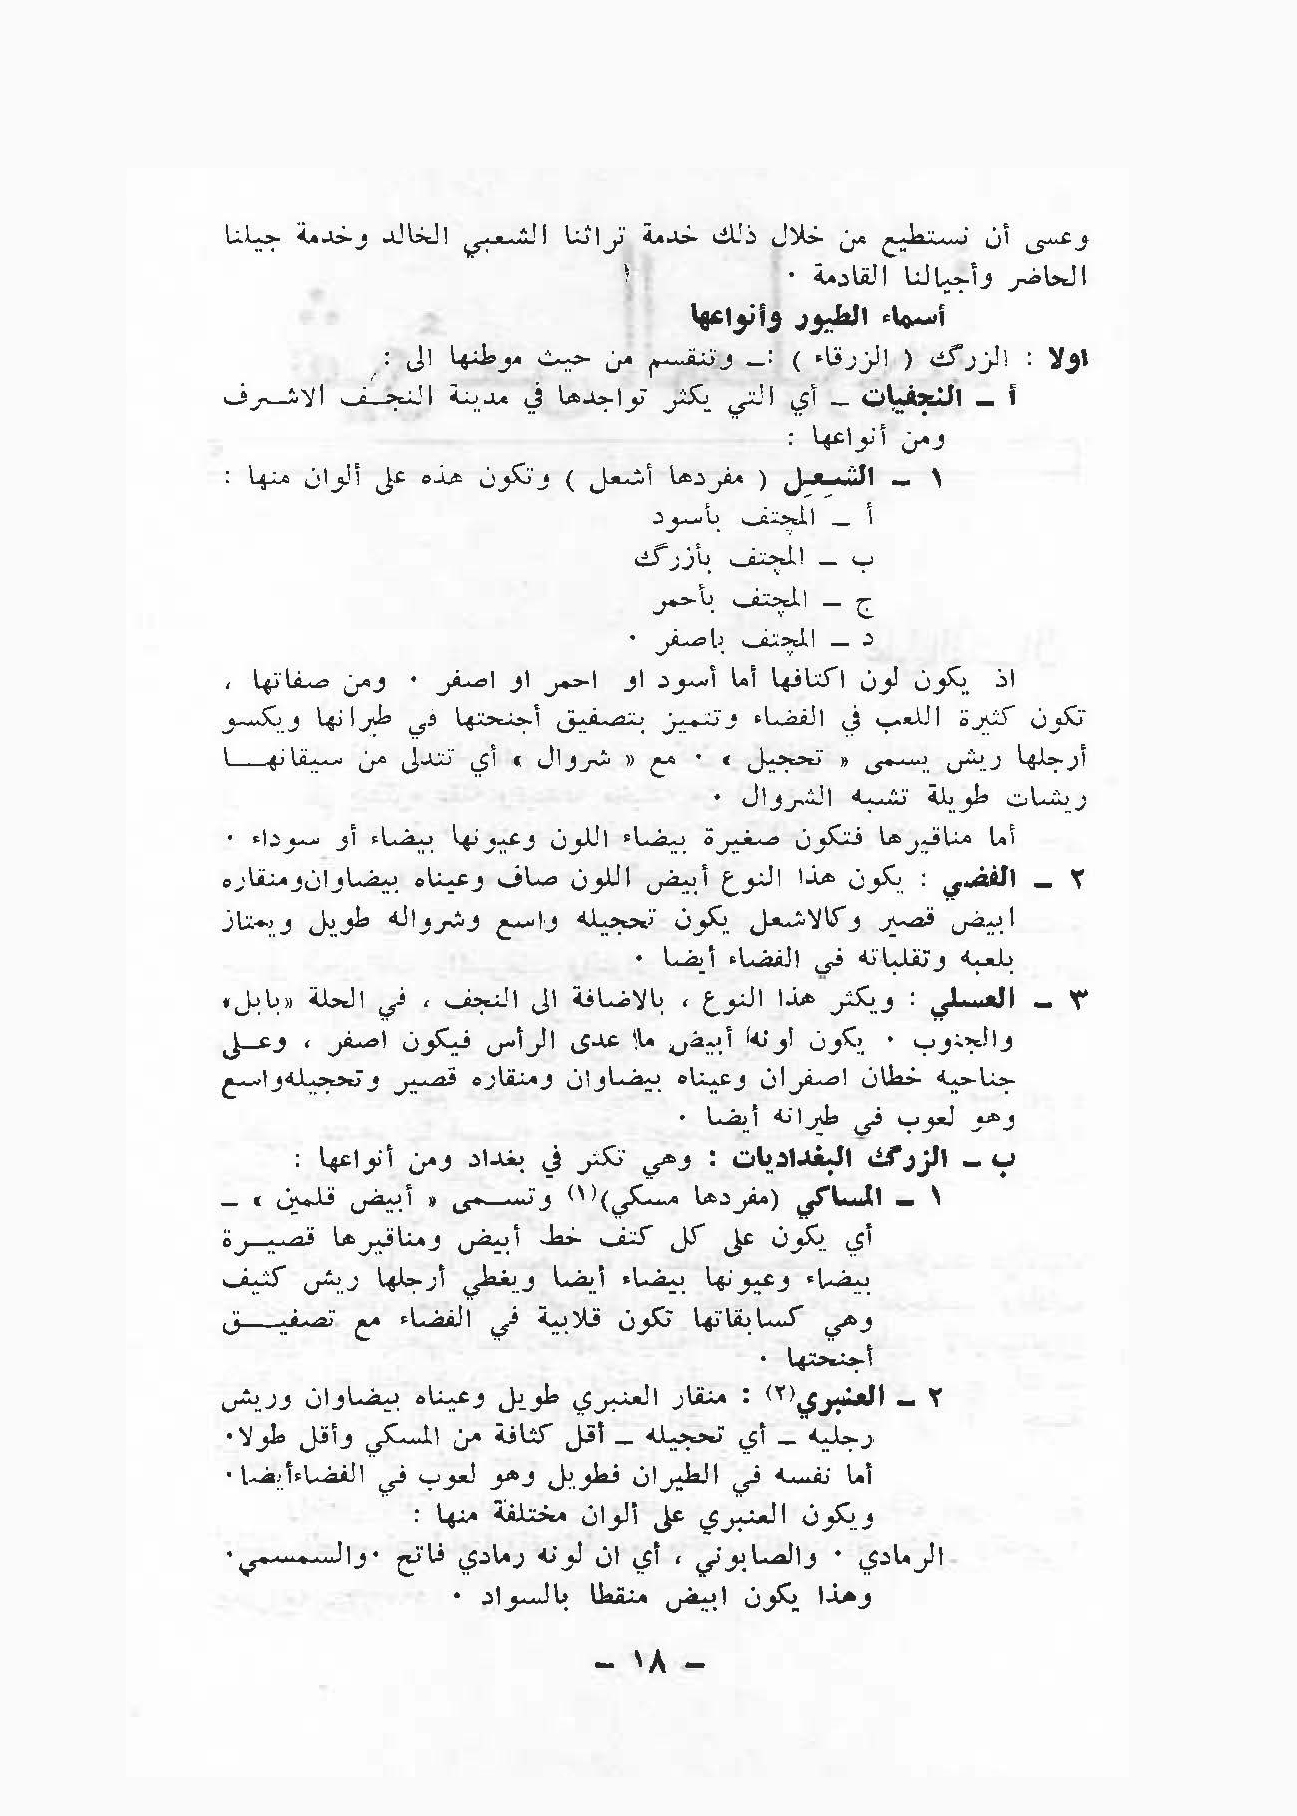 وعسى أن نستطيع من خلال ذلك خدمة تراثنا الشعبي الخالد وخدمة جيلنا
الحاضر وأجيالنا القادمة ٠
أسماء الطيور وأنواعها
اولا : الزرگ ( الزرقاء ) :ـ وتنقسم من حيث موطنها الى :
أ ـ النجفيات ـ أي التي يكثر تواجدها في مدينة النجـف الاشـرف
ومن أنواعها :
١ ـ الشِعِل ( مفردها أشعل ) وتكون هذه على ألوان منها :
أ ـ المچتف بأسود
ب ـ المچتف بأزرگ
ج ـ المچتف بأحمر
د ـ المچتف باصفر ٠
اذ يكون لون اكتافها أما أسود او احمر او اصفر ٠ ومن صفاتها ،
تكون كثيرة اللعب في الفضاء وتتميز بتصفيق أجنحتها في طيرانها ويكسو
أرجلها ريش يسمى « تحجيل » ٠ مع « شروال » أي تتدلى من سيقانهـا
ريشات طويلة تشبه الشروال ٠
أما مناقيرها فتكون صغيرة بيضاء اللون وعيونها بيضاء أو سوداء ٠
٢ ـ الفضي : يكون هذا النوع أبيض اللون صاف وعيناه بيضاوان ومنقاره
ابيض قصير وكالاشعل يكون تحجيله واسع وشرواله طويل ويمتاز
بلعبه وتقلباته في الفضاء أيضا ٠
٣ ـ العسلي : ويكثر هذا النوع ، بالاضافة الى النجف ، في الحلة «بابل»
والجنوب ٠ يكون لونها أبيض ما عدى الرأس فيكون اصفر ، وعـلى
جناحيه خطان اصفران وعيناه بيضاوان ومنقاره قصير وتحجيله واسع
وهو لعوب في طيرانه أيضا ٠
ب ـ الزرگ البغداديات : وهي تكثر في بغداد ومن أنواعها :
١ ـ المساكي (مفردها مسكي)(١) وتسـمى « أبيض قلمين » ـ
أي يكون على كل كتف خط أبيض ومناقيرها قصيـرة
بيضاء وعيونها بيضاء أيضا ويغطي أرجلها ريش كثيف
وهي كسابقاتها تكون قلابية في الفضاء مع تصفيـق
أجنحتها ٠
٢ ـ العنبري(٢) : منقار العنبري طويل وعيناه بيضاوان وريش
رجليه ـ أي تحجيله ـ أقل كثافة من المسكي وأقل طولا٠
أما نفسه في الطيران فطويل وهو لعوب في الفضاء أيضا٠
ويكون العنبري على ألوان مختلفة منها :
الرمادي ٠ والصابوني ، أي ان لونه رمادي فاتح ٠والسمسمي٠
وهذا يكون ابيض منقطا بالسواد ٠
ـ ١٨ ـ